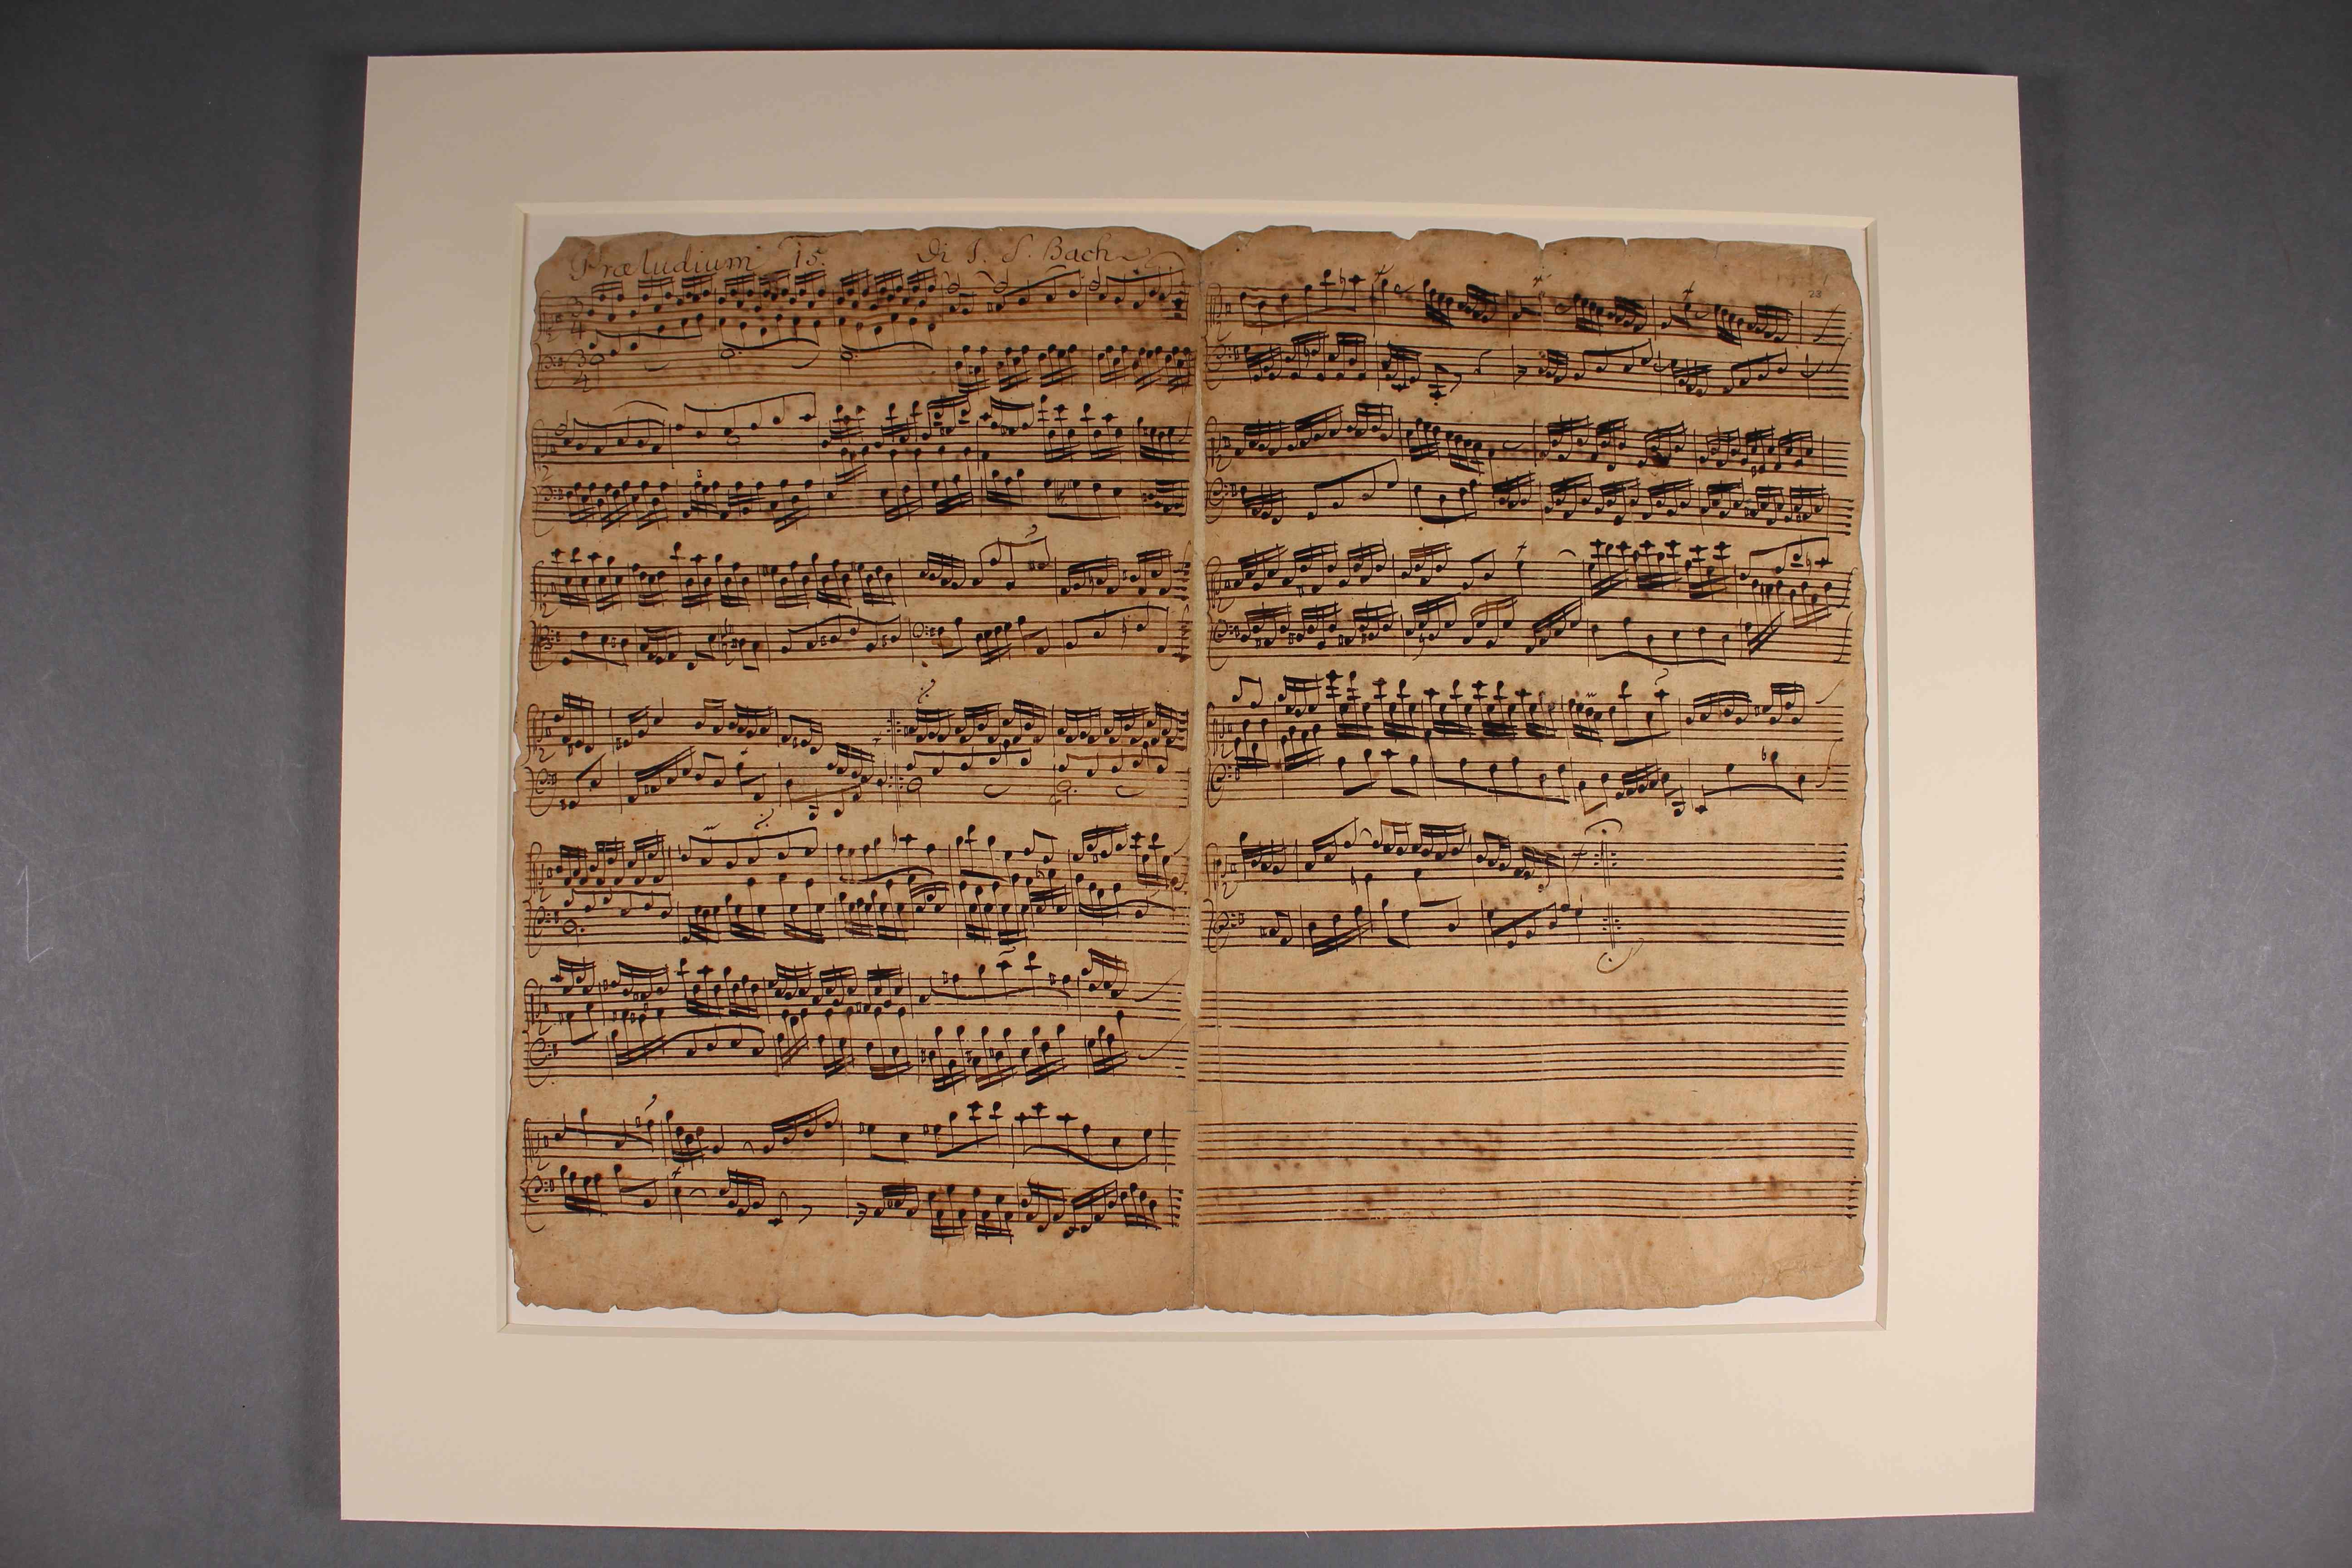 Præludium 15. di J. S. Bach
3
4
3
4
23